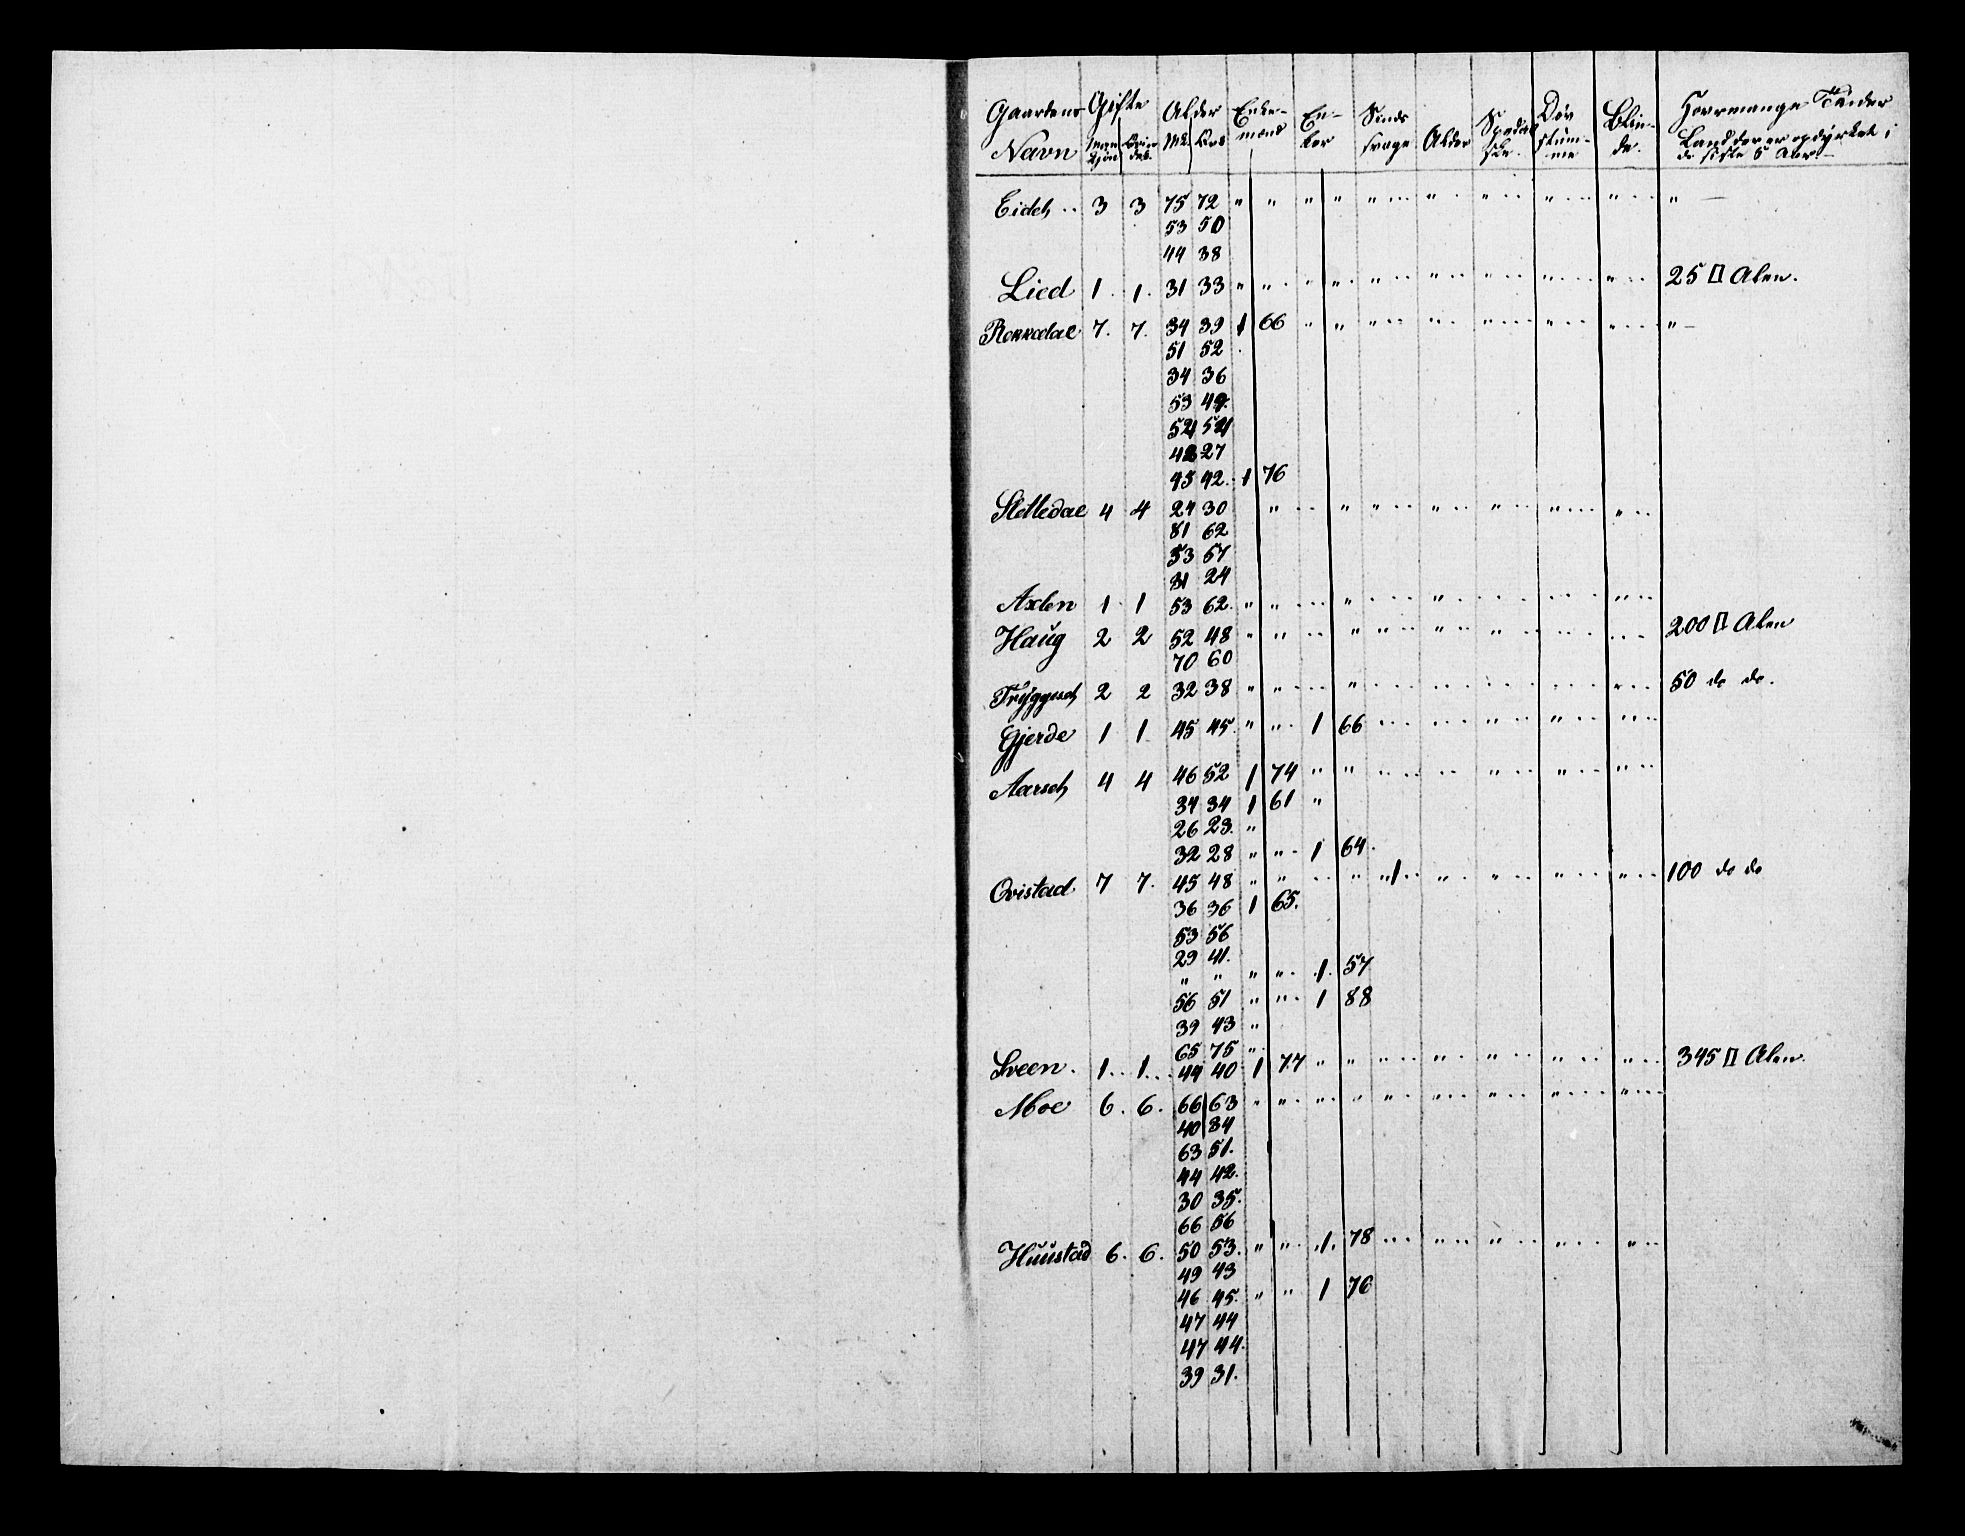 Gaardens Navn Gifte Mandkjøn Qvindek. Alder Mk Qvk Enkemænd Enker Sindssvage Alder Spedalske Døvstumme Blinde. Hvormange Tønder Land der er opdyrket i de siste 5 Aar
Eideh .. 3 3 75 72 " " " " " ... " .. " .. " ... " .. " —
53 50
44 38
Lied 1. 1. 31 33 " " .. " " ... " .. " .. " ... " .. 25 □ Alen.
7. 7. 34 39 1 66 " " " .. " .. " ... " .. " ... " —
51 52
34 36
53 49.
52 52
42 27
45 42. 1 76
Slettedal 4 4 24 30 " .. " " .. " .. " .. " ... " ..
81 62
53 57
31 24
Axlen 1. 1 53 62. " " .. " .. " .. .. .. " ..
Haug 2 2 52 48 " " .. " " .. " .. " .. .. ... 200 □ Alen
70 60
Tryggeseth 2 2 32 38 " " .. " .. .. .. " .. " .. 50 do do.
Gjerde 1 1 45 45. " " . 1 66 ... .. " .. " .. " ..
Aarseth 4 4 46 52 1 74 " " .. .. " .. " .. " ..
34 34 1 61 "
26 23. "
32 28 " " . 1 64.
Qvistad 7 7. 45 48 " " .. " " 1 .. " .. " .. " .. " .. 100 do do
36 36 1 65.
53 56
29 41.
" " " " . 1. 57
56 51 " " . 1 88
39 43 "
65 75 "
Sveen. 1. 1. 44 40 1 77 " " .. " .. " .. " .. " .. 345 □ Alen.
Moe 6. 6. 66 63 " " .. " " .. " .. " .. " ... " ..
40 34
63 51.
44 42.
30 35.
66 56
Huustad 6. 6. 50 53. " " . 1. 78 ... " .. " .. " .. " ..
49 43
46 45. " " 1 76
47 44
47 44.
39 31.